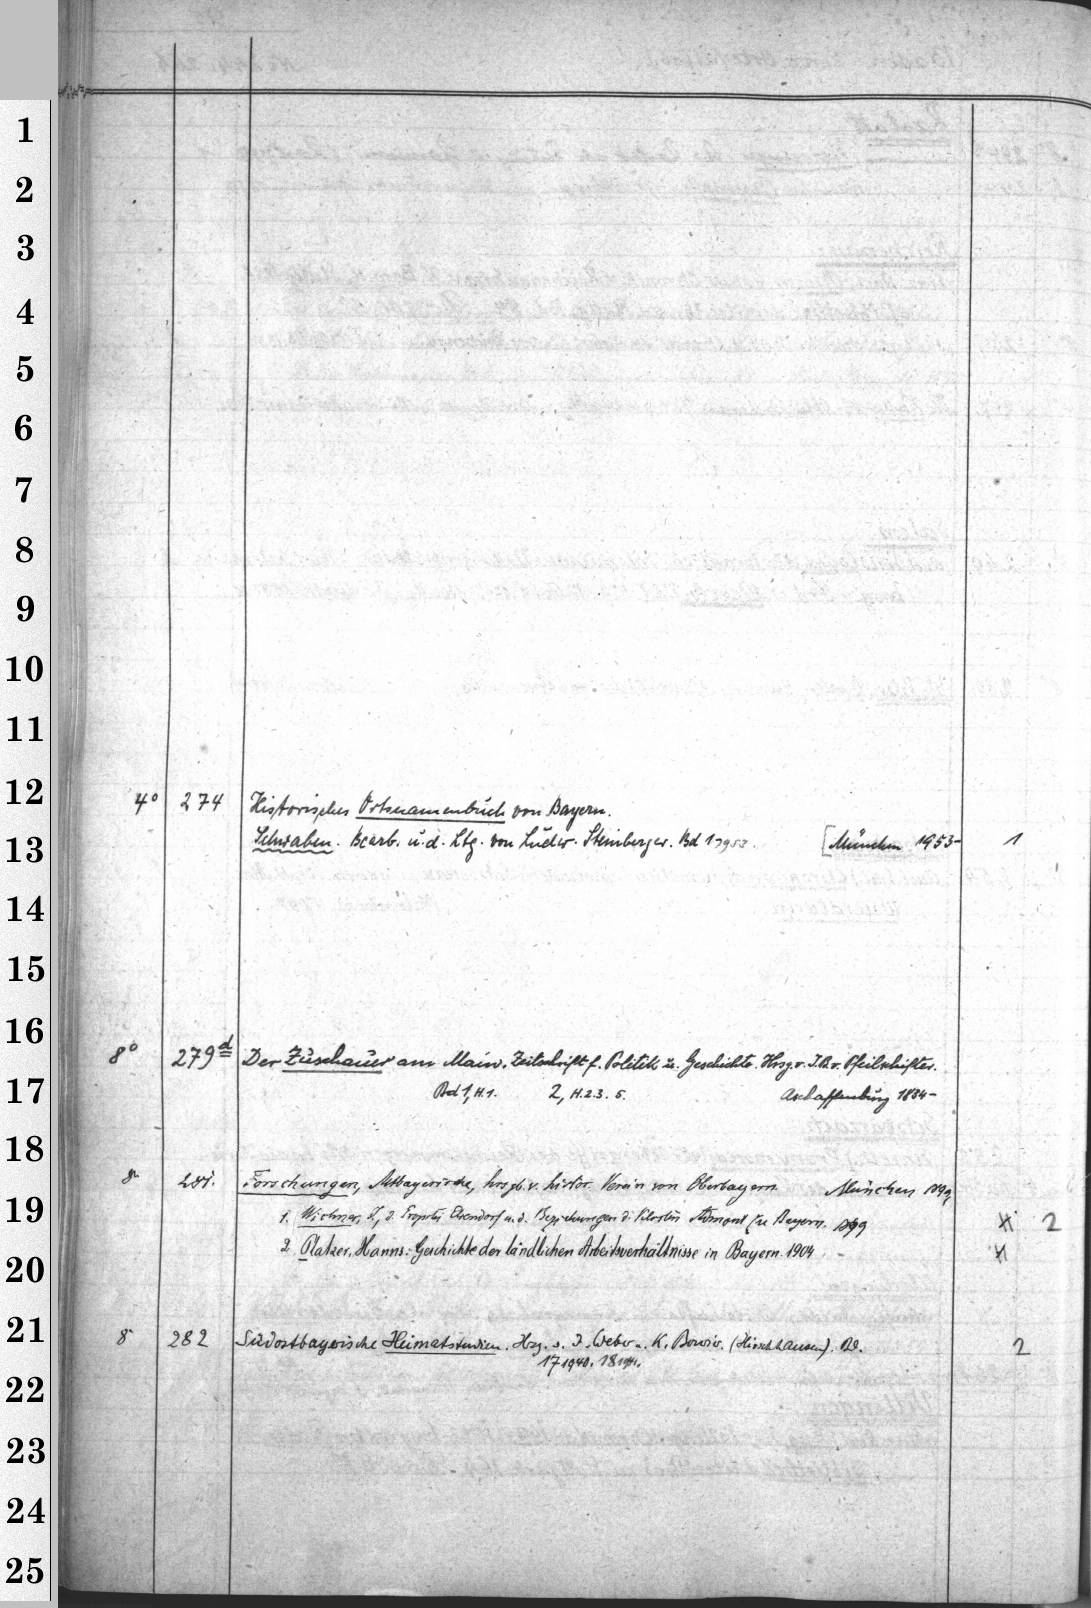 1
2
3
4
5
6
7
8
9
10
11
12
13
14
15
16
17
18
19
20
21
22
23
24
25
4° 274 Historisches Ortsnamenbuch von Bayern.
Schwaben. Bearb. u. d. Ltg. von Ludw. Steinberger. Bd 1 1953. [München 1953- 1
8° 279d Der Zuschauer am Main. Zeitschrift f. Politik u. Geschichte. Hrsg. v. J. B. v. Pfeilschifter.
Bd 1, H. 1. 2, H. 2.3. 5. Aschaffenburg 1834-
8° 281. Forschungen, Altbayerische, hrsgb. v. histor. Verein von Oberbayern. München 1899
1. Wichner, J., d. Propstei Elsendorf u. d. Beziehungen d. Klosters Admont zu Bayern. 1899 2
2. Platzer, Hanns: Geschichte der ländlichen Arbeitsverhältnisse in Bayern. 1904
8° 282 Südostbayerische Heimatstudien. Hrsg. v. J. Weber u. K. Bourier. (Hirschhausen). Bd. 2
17 1940. 18 1941.